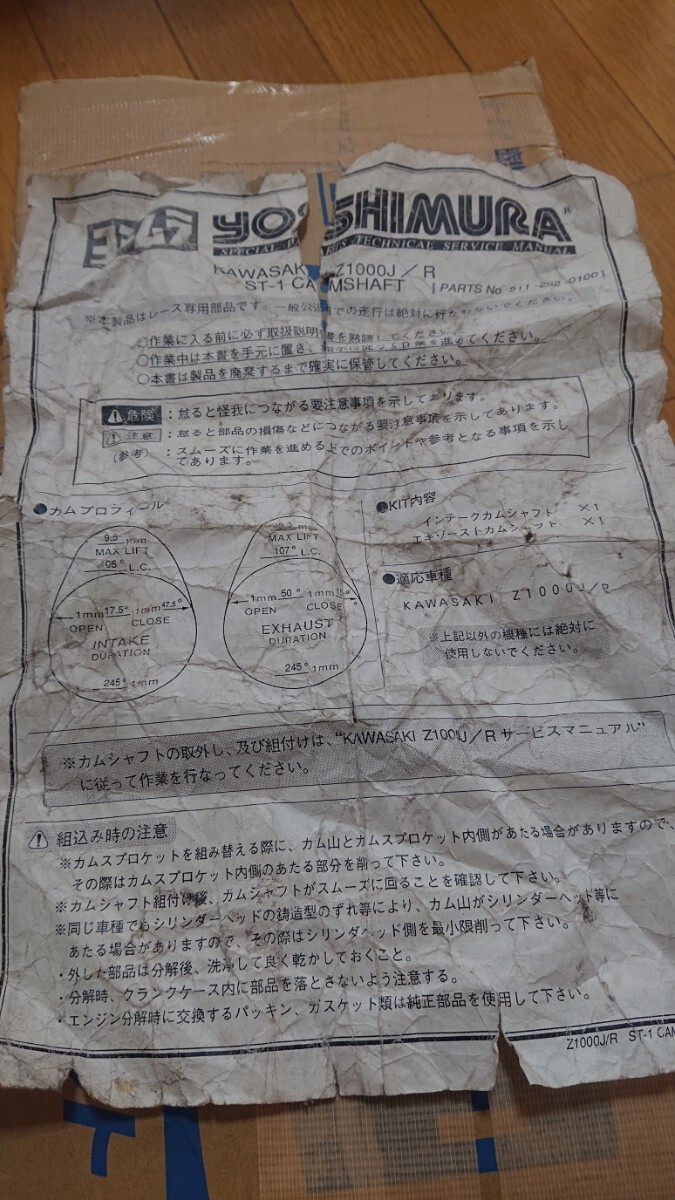 ヨシムラ YOSHIMURA®
SPECIAL PARTS TECHNICAL SERVICE MANUAL
KAWASAKI Z1000J/R
ST-1 CAMSHAFT
(PARTS No.
※本製品はレース専用部品です。一般公道での走行は絶対に行なわないでください。
○作業に入る前に必ず取扱説明書を熟読してください。
○作業中は本書を手元に置き、 作業を進めてください。
○本書は製品を廃棄するまで確実に保管してください。
⚠危険 : 怠ると怪我につながる要注意事項を示してあります。
⚠注意 : 怠ると部品の損傷などにつながる要注意事項を示してあります。
(参考) : スムーズに作業を進める上でのポイントや参考となる事項を示し
てあります。
●カムプロフィール
9.5 mm
MAX LIFT
05° L.C.
1mm 17.5° 1mm 47.5°
OPEN CLOSE
INTAKE
DURATION
245° 1mm
mm
MAX LIFT
107° L.C.
1mm 50° 1mm
OPEN CLOSE
EXHAUST
DURATION
245° 1mm
●KIT内容
インテークカムシャフト ×1
エキゾーストカムシャフト ×1
●適応車種
KAWASAKI Z1000J/R
※上記以外の機種には絶対に
使用しないでください。
※カムシャフトの取外し、及び組付けは、"KAWASAKI Z1000J/R サービスマニュアル"
に従って作業を行なってください。
⚠ 組込み時の注意
※カムスプロケットを組み替える際に、カム山とカムスプロケット内側があたる場合がありますので、
その際はカムスプロケット内側のあたる部分を削って下さい。
※カムシャフト組付け後、カムシャフトがスムーズに回ることを確認して下さい。
※同じ車種でもシリンダーヘッドの鋳造型のずれ等により、カム山がシリンダーヘッド等に
あたる場合がありますので、その際はシリンダヘッド側を最小限削って下さい。
・外した部品は分解後、洗浄して良く乾かしておくこと。
・分解時、クランクケース内に部品を落とさないよう注意する。
・エンジン分解時に交換するパッキン、ガスケット類は純正部品を使用して下さい。
Z1000J/R ST-1 CAM